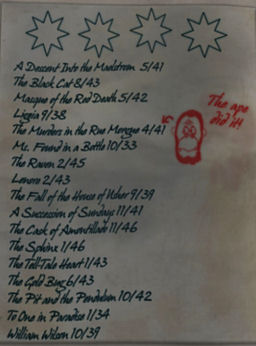 A Descent Into the Maelstrom 5/41
The Black Cat 8/43
Masque of the Red Death 5/42
Ligeia 9/38
The Murders in the Rue Morgue 4/41
The ape
did it!
Ms. Found in a Bottle 10/33
The Raven 2/45
Lenore 2/43
The Fall of the House of Usher 9/39
A Succession of Sundays 11/41
The Cask of Amontillado 11/46
The Sphinx 1/46
The Tell-Tale Heart 1/43
The Gold Bug 6/43
The Pit and the Pendulum 10/42
To One in Paradise 1/34
William Wilson 10/39